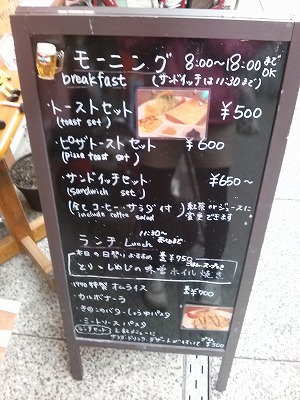 モーニング 8:00〜18:00まで OK
breakfast (サンドイッチは11:30まで)
・トーストセット ¥500
(toast set)
・ピザトーストセット ¥600
(pizza toast set)
・サンドイッチセット ¥650〜
(sandwich set)
(全てコーヒー・サラダ付) 紅茶orジュースに
(include coffee salad) 変更できます
11:30〜
ランチ・Lunch
本日の日替りおすすめ ¥750
とり・しめじの味噌ホイル焼き
特製オムライス ¥700
・カルボナーラ
・きのこのバターしょうゆパスタ
・ミートソースパスタ
ランチセット
サラダ・ドリンク・デザートが ¥300